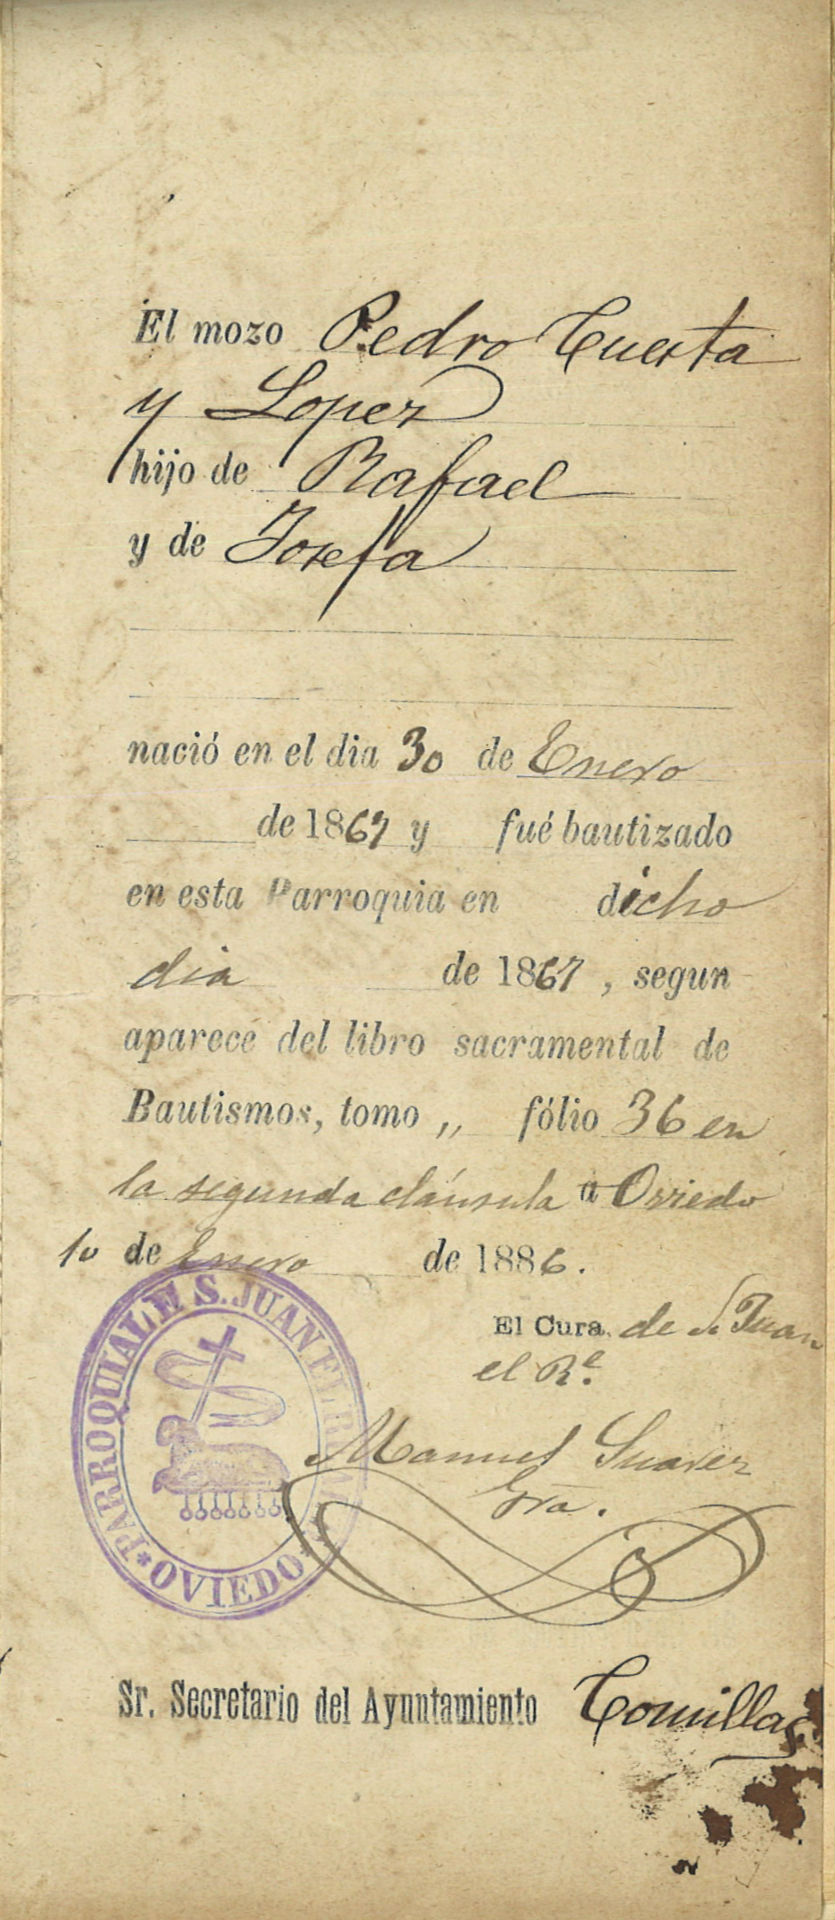 El mozo Pedro Cuesta
y Lopez
hijo de Rafael
y de Josefa
nació en el dia 30 de Enero
de 1867 y fué bautizado
en esta Parroquia en dicho
dia de 1867, segun
aparece del libro sacramental de
Bautismos, tomo „ fólio 36 en
la segunda cláusula á Oviedo
10 de Enero de 1886.
El Cura de S. Juan
el Rl.
PARROQUIAL DE S. JUAN EL REAL
*OVIEDO*
Manuel Suarez
Gra.
Sr. Secretario del Ayuntamiento Comillas